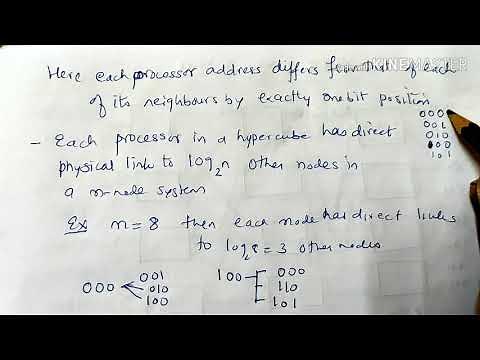 KINEMASTER
Here each processor address differs from that of each
of its neighbours by exactly one bit position
000
001
010
100
101
- Each processor in a hypercube has direct
physical link to log2n other nodes in
a n-node system
Ex n=8 then each node has direct links
to log28=3 other nodes
000 001 100 000
010 110
100 101